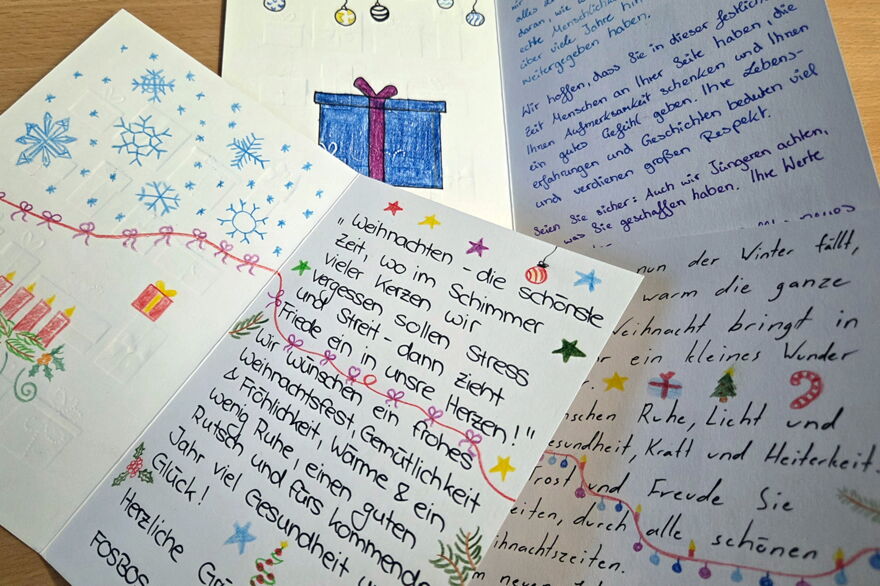 alles
daran, wie
echte
über viele Jahre
weitergegeben haben.
Wir hoffen, dass Sie in dieser
Zeit Menschen an Ihrer Seite haben, die
Ihnen Aufmerksamkeit schenken und Ihnen
ein gutes Gefühl geben. Ihre Lebens-
erfahrungen und Geschichten bedeuten viel
und verdienen großen Respekt.
Seien Sie sicher: Auch wir Jüngeren achten,
was Sie geschaffen haben. Ihre Werte
"Weihnachten - die schönste
Zeit, wo im Schimmer
vieler Kerzen wir
vergessen sollen Stress
und Streit - dann zieht
Fiede ein in unsre Herzen!"
Wir wünschen ein frohes
Weihnachtsfest, Gemütlichkeit
& Fröhlichkeit, Wärme & ein
wenig Ruhe, einen guten
Rutsch und fürs kommende
Jahr viel Gesundheit
Glück!
Herzliche
FOSBOS
nun der Winter fällt,
warm die ganze
Weihnacht bringt in
ein kleines Wunder
Ruhe, Licht und
Kraft und Heiterkeit.
Trost und Freude Sie
durch alle schönen